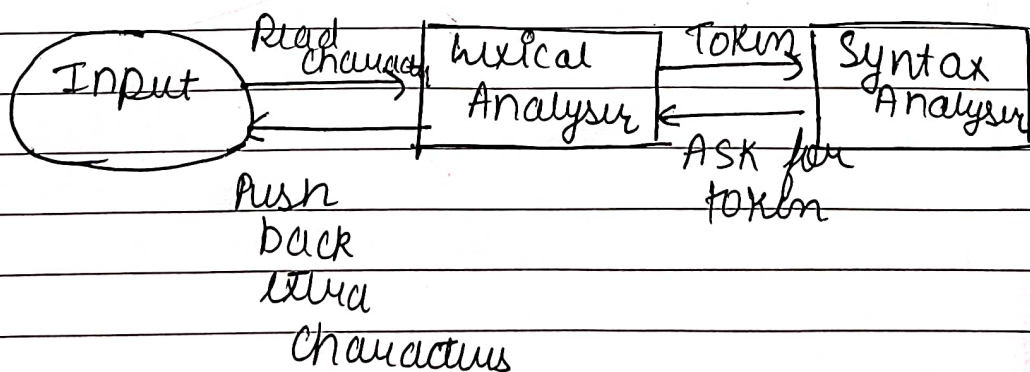 Input
Read
Character
Lexical
Analyser
Token
Syntax
Analyser
Ask for
token
Push
back
extra
characters